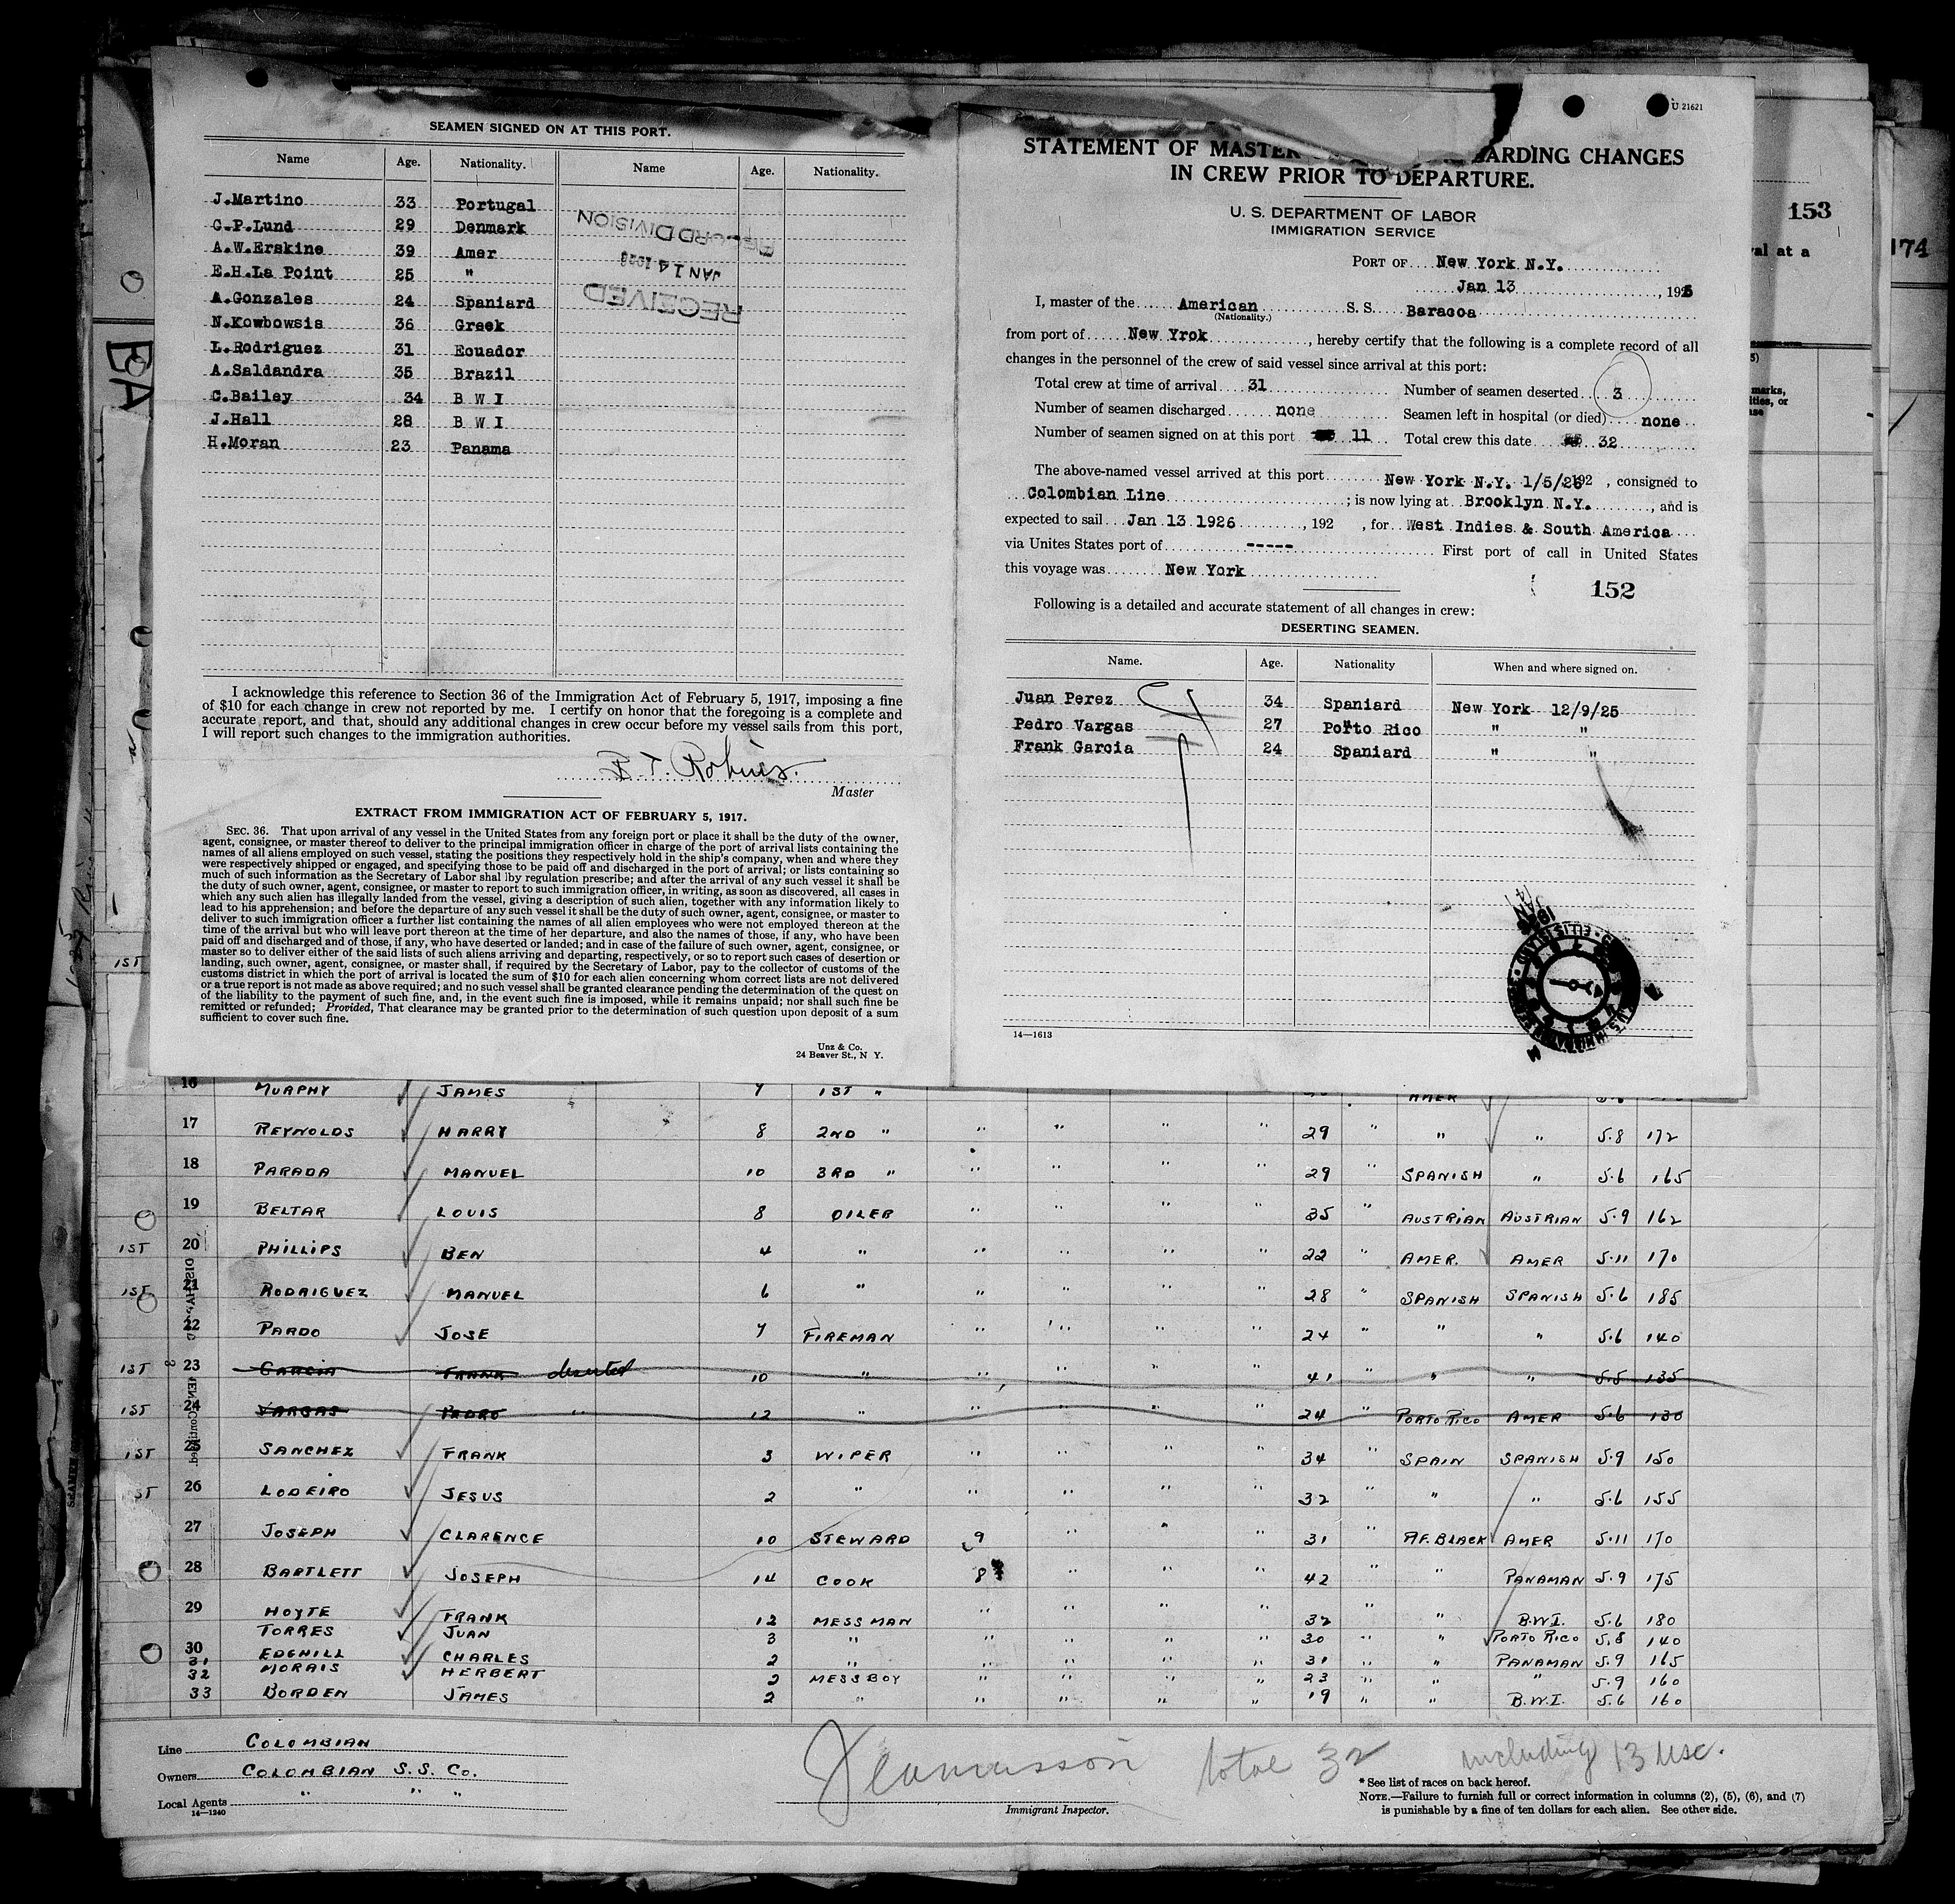 SEAMEN SIGNED ON AT THIS PORT.
Name Age. Nationality. Name Age. Nationality.
J.Martino 33 Portugal
G.P.Lund 29 Denmark
A.W.Erskine 39 Amer
E.H.La Point 25 "
A.Gonzales 24 Spaniard
N.Kowbowsis 36 Greek
L.Rodriguez 31 Ecuador
A.Saldandra 35 Brazil
C.Bailey 34 B W I
J.Hall 28 B W I
H.Moran 23 Panama
RECORD DIVISION
JAN 14 1926
RECEIVED
I acknowledge this reference to Section 36 of the Immigration Act of February 5, 1917, imposing a fine
of $10 for each change in crew not reported by me. I certify on honor that the foregoing is a complete and
accurate report, and that, should any additional changes in crew occur before my vessel sails from this port,
I will report such changes to the immigration authorities.
Master
EXTRACT FROM IMMIGRATION ACT OF FEBRUARY 5, 1917.
SEC. 36. That upon arrival of any vessel in the United States from any foreign port or place it shall be the duty of the owner,
agent, consignee, or master thereof to deliver to the principal immigration officer in charge of the port of arrival lists containing the
names of all aliens employed on such vessel, stating the positions they respectively hold in the ship's company, when and where they
were respectively shipped or engaged, and specifying those to be paid off and discharged in the port of arrival; or lists containing so
much of such information as the Secretary of Labor shal lby regulation prescribe; and after the arrival of any such vessel it shall be
the duty of such owner, agent, consignee, or master to report to such immigration officer, in writing, as soon as discovered, all cases in
which any such alien has illegally landed from the vessel, giving a description of such alien, together with any information likely to
lead to his apprehension; and before the departure of any such vessel it shall be the duty of such owner, agent, consignee, or master to
deliver to such immigration officer a further list containing the names of all alien employees who were not employed thereon at the
time of the arrival but who will leave port thereon at the time of her departure, and also the names of those, if any, who have been
paid off and discharged and of those, if any, who have deserted or landed; and in case of the failure of such owner, agent, consignee, or
master so to deliver either of the said lists of such aliens arriving and departing, respectively, or so to report such cases of desertion or
landing, such owner, agent, consignee, or master shall, if required by the Secretary of Labor, pay to the collector of customs of the
customs district in which the port of arrival is located the sum of $10 for each alien concerning whom correct lists are not delivered
or a true report is not made as above required; and no such vessel shall be granted clearance pending the determination of the quest on
of the liability to the payment of such fine, and, in the event such fine is imposed, while it remains unpaid; nor shall such fine be
remitted or refunded; Provided, That clearance may be granted prior to the determination of such question upon deposit of a sum
sufficient to cover such fine.
Unz & Co.
24 Beaver St., N Y.
U 21621
STATEMENT OF MASTER ARDING CHANGES
IN CREW PRIOR TO DEPARTURE.
U. S. DEPARTMENT OF LABOR
IMMIGRATION SERVICE
PORT OF New York N.Y.
Jan 13, 1926
I, master of the American S. S. Baracoa
(Nationality.)
from port of New Yrok, hereby certify that the following is a complete record of all
changes in the personnel of the crew of said vessel since arrival at this port:
Total crew at time of arrival 31 Number of seamen deserted 3
Number of seamen discharged none Seamen left in hospital (or died) none
Number of seamen signed on at this port 11 Total crew this date 32
The above-named vessel arrived at this port New York N.Y. 1/5/26 192 , consigned to
Colombian Line ; is now lying at Brooklyn N.Y. , and is
expected to sail Jan 13 1926 , 192 , for West Indies & South America
via Unites States port of ----- First port of call in United States
this voyage was New York
152
Following is a detailed and accurate statement of all changes in crew:
DESERTING SEAMEN.
Name. Age. Nationality When and where signed on.
Juan Perez 34 Spaniard New York 12/9/25
Pedro Vargas 27 Porto Rico " "
Frank Garcia 24 Spaniard " "
14—1613
153
174
al at a
marks,
ities, or
BA
16 MURPHY JAMES 7 1ST " AMER
17 REYNOLDS HARRY 8 2ND " " " " " 29 " " " 5.8 172
18 PARADA MANUEL 10 3RD " " " " " 29 " SPANISH " 5.6 165
19 BELTAR LOUIS 8 OILER " " " " 35 " AUSTRIAN AUSTRIAN 5.9 162
1ST 20 PHILLIPS BEN 4 " " " " " 22 " AMER. AMER 5.11 170
1ST 21 RODRIGUEZ MANUEL 6 " " " " " 28 " SPANISH SPANISH 5.6 185
22 PARDO JOSE 7 FIREMAN " " " " 24 " " " 5.6 140
1ST 23 GARCIA FRANK deserted 10 " " " " " 41 " " " 5.5 135
1ST 24 VARGAS PEDRO " 12 " " " " " 24 " PORTO RICO AMER 5.6 130
1ST 25 SANCHEZ FRANK 3 WIPER " " " " 34 " SPAIN SPANISH 5.9 150
ST 26 LODEIRO JESUS 2 " " " " " 32 " " " 5.6 155
27 JOSEPH CLARENCE 10 STEWARD 9 " " " 31 " AF. BLACK AMER 5.11 170
28 BARTLETT JOSEPH 14 COOK 8 " " " 42 " " PANAMAN 5.9 175
29 HOYTE FRANK 12 MESSMAN " " " " 32 " " B.W.I. 5.6 180
TORRES JUAN 3 " " " " " 30 " " PORTO RICO 5.8 140
30
31 EDGHILL CHARLES 2 " " " " " 31 " " PANAMAN 5.9 165
32 MORAIS HERBERT 2 MESSBOY " " " " 23 " " " 5.9 160
33 BORDEN JAMES 2 " " " " " 19 " " B.W.I. 5.6 160
Line COLOMBIAN
Owners COLOMBIAN S.S. Co.
Local Agents " " "
14—1240
total 32 including 13 USC.
Immigrant Inspector.
* See list of races on back hereof.
NOTE.—Failure to furnish full or correct information in columns (2), (5), (6), and (7)
is punishable by a fine of ten dollars for each alien. See other side.